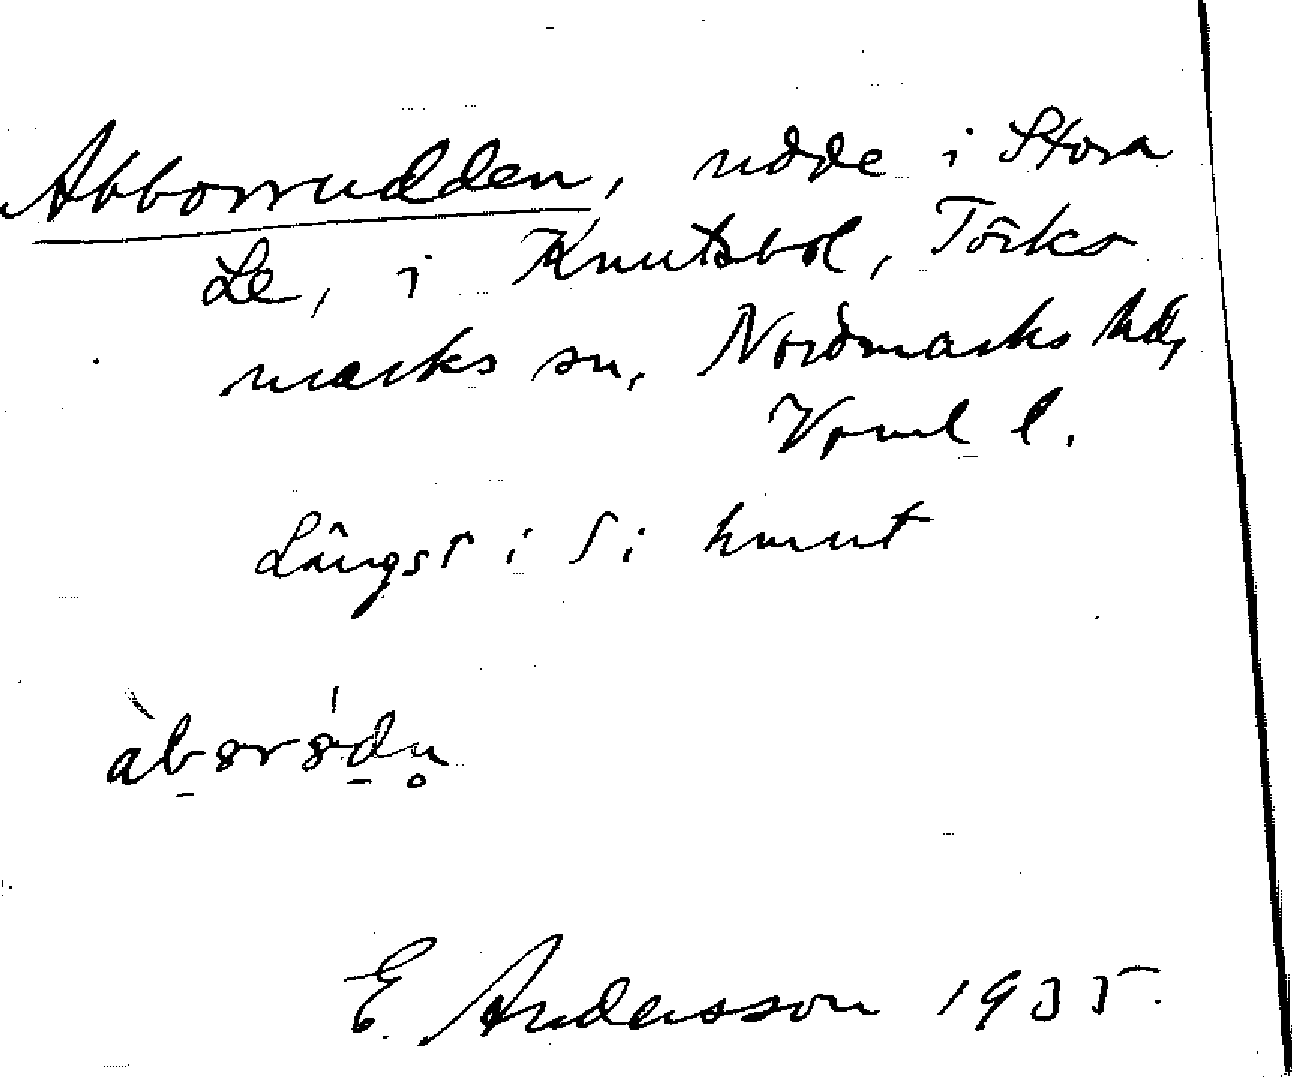 Abborrudden, udde i Stora
Le, i Knutsbol, Töcks
marks sn, Nordmarks hd,
Vrml l.
Längst i S i hmnt
E. Andersson 1935.